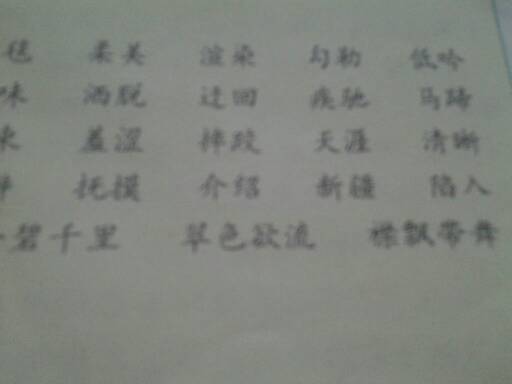 毯 柔美 渲染 勾勒 低吟
味 洒脱 迂回 疾驰 马蹄
束 羞涩 摔跤 天涯 清晰
摸 介绍 新疆 陷入
一碧千里 翠色欲流 襟飘带舞